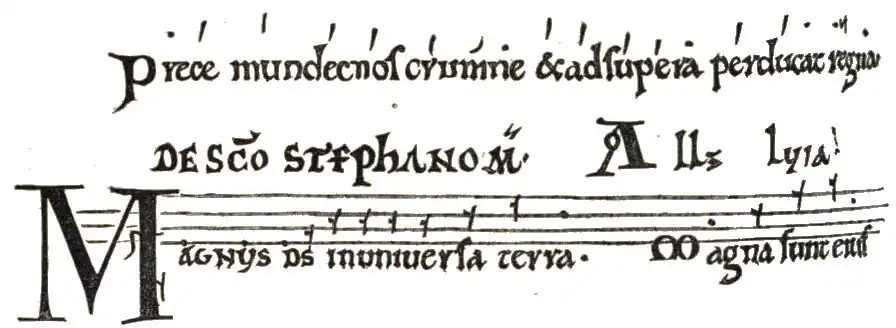 prece mundet nos crimine & ad supera perducat regna.
DE SCO STEPHANO M. All lyia
MAGNUS DS in universa terra. Magna sunt eius